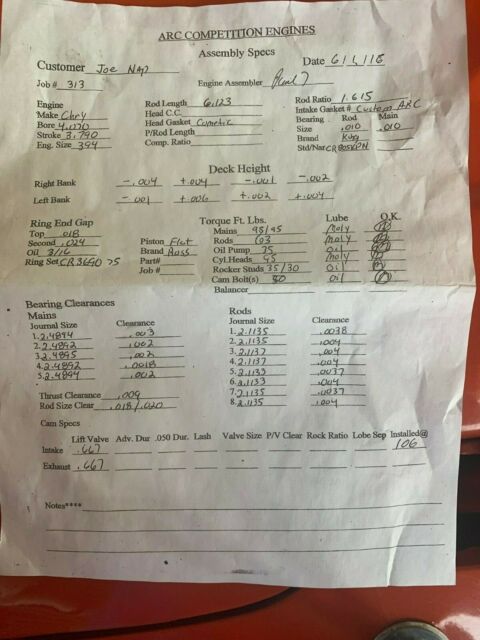 ARC COMPETITION ENGINES
Assembly Specs
Customer Joe Date 6/1/18
Job # 313 Engine Assembler
Engine Rod Length 6.123 Rod Ratio 1.615
Make Chry Head C.C. Intake Gasket # Custom ARC
Bore 4.070 Head Gasket Cometic Bearing Rod Main
Stroke 3.790 P/Rod Length Size .010 .010
Eng. Size 394 Comp. Ratio Brand King
Std/Nar
Deck Height
Right Bank -.004 +.004 -.001 -.002
Left Bank -.001 +.006 +.002 +.004
Ring End Gap Torque Ft. Lbs. Lube O.K.
Top .018 Mains 95/45 Moly
Second .024 Piston Flat Rods 103 Moly
Oil 3/16 Brand Ross Oil Pump 75 Oil
Ring Set Part# Cyl.Heads 95 Moly
Job # Rocker Studs 35/30 Oil
Cam Bolt(s) Oil
Balancer
Bearing Clearances
Mains Rods
Journal Size Clearance Journal Size Clearance
1. 2.4894 .003 1. 2.1135 .0038
2. 2.4892 .002 2. 2.1135 .004
3. 2.4895 .002 3. 2.1137 .004
4. 2.4892 .0018 4. 2.1137 .004
5. 2.4894 .002 5. 2.1133 .0037
6. 2.1133 .004
Thrust Clearance .009 7. 2.1135 .0037
Rod Size Clear .018/.020 8. 2.1135 .004
Cam Specs
Lift Valve Adv. Dur .050 Dur. Lash Valve Size P/V Clear Rock Ratio Lobe Sep Installed@
Intake .667 106
Exhaust .667
Notes****